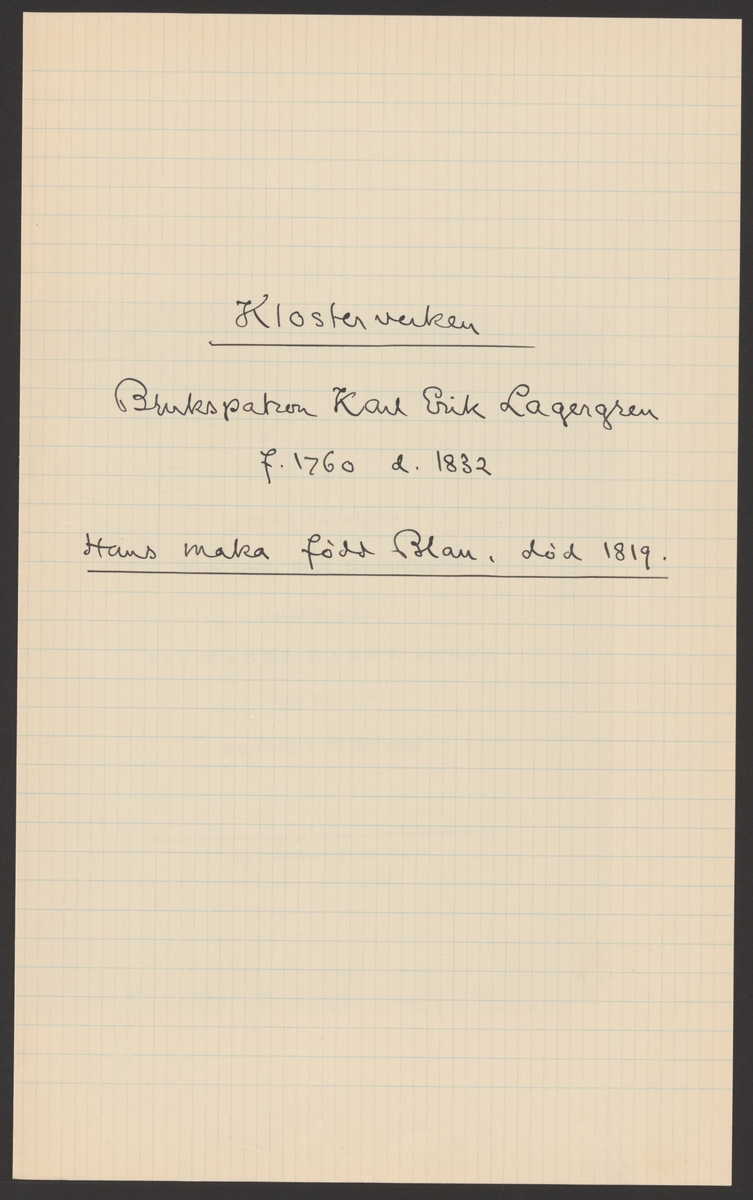 Klosterverken
Brukspatron Karl Erik Lagergren
f. 1760 d. 1832
Hans maka född Blau. död 1819.